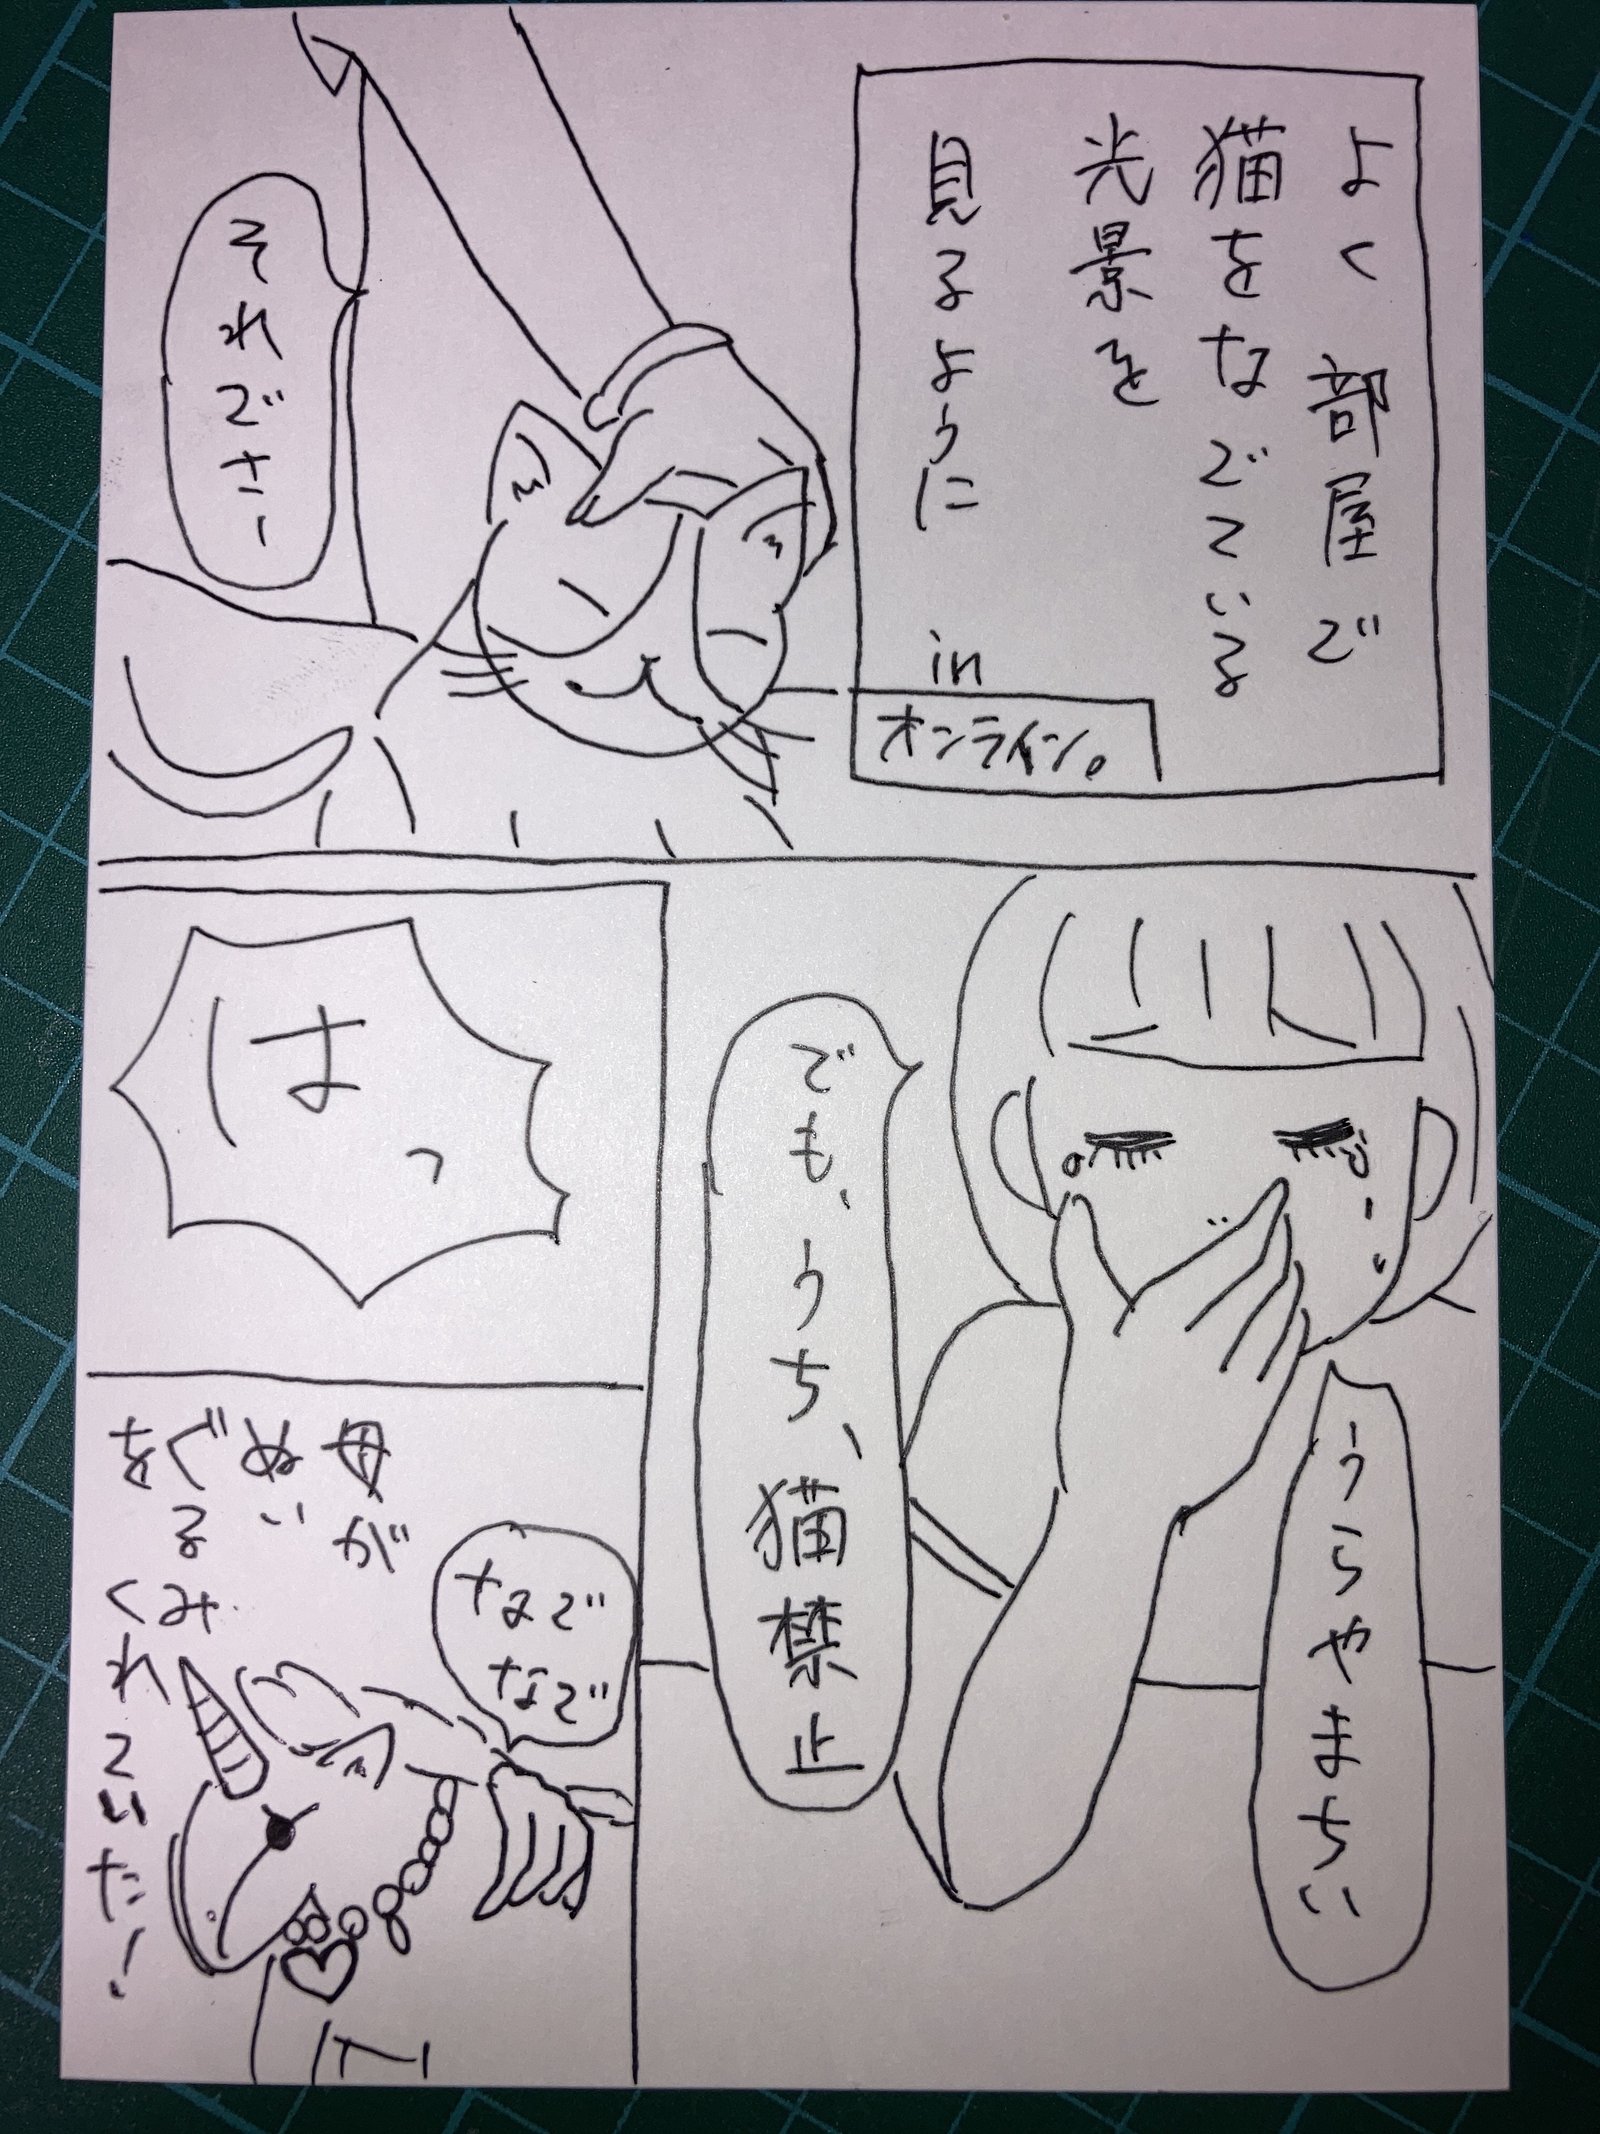 よく部屋で
猫をなでている
光景を
見るように
in
オンライン。
それでさー
うらやまちい
でも、うち、猫禁止
はっ
なで
なで
母が
ぬい
ぐるみ
をくれていた！